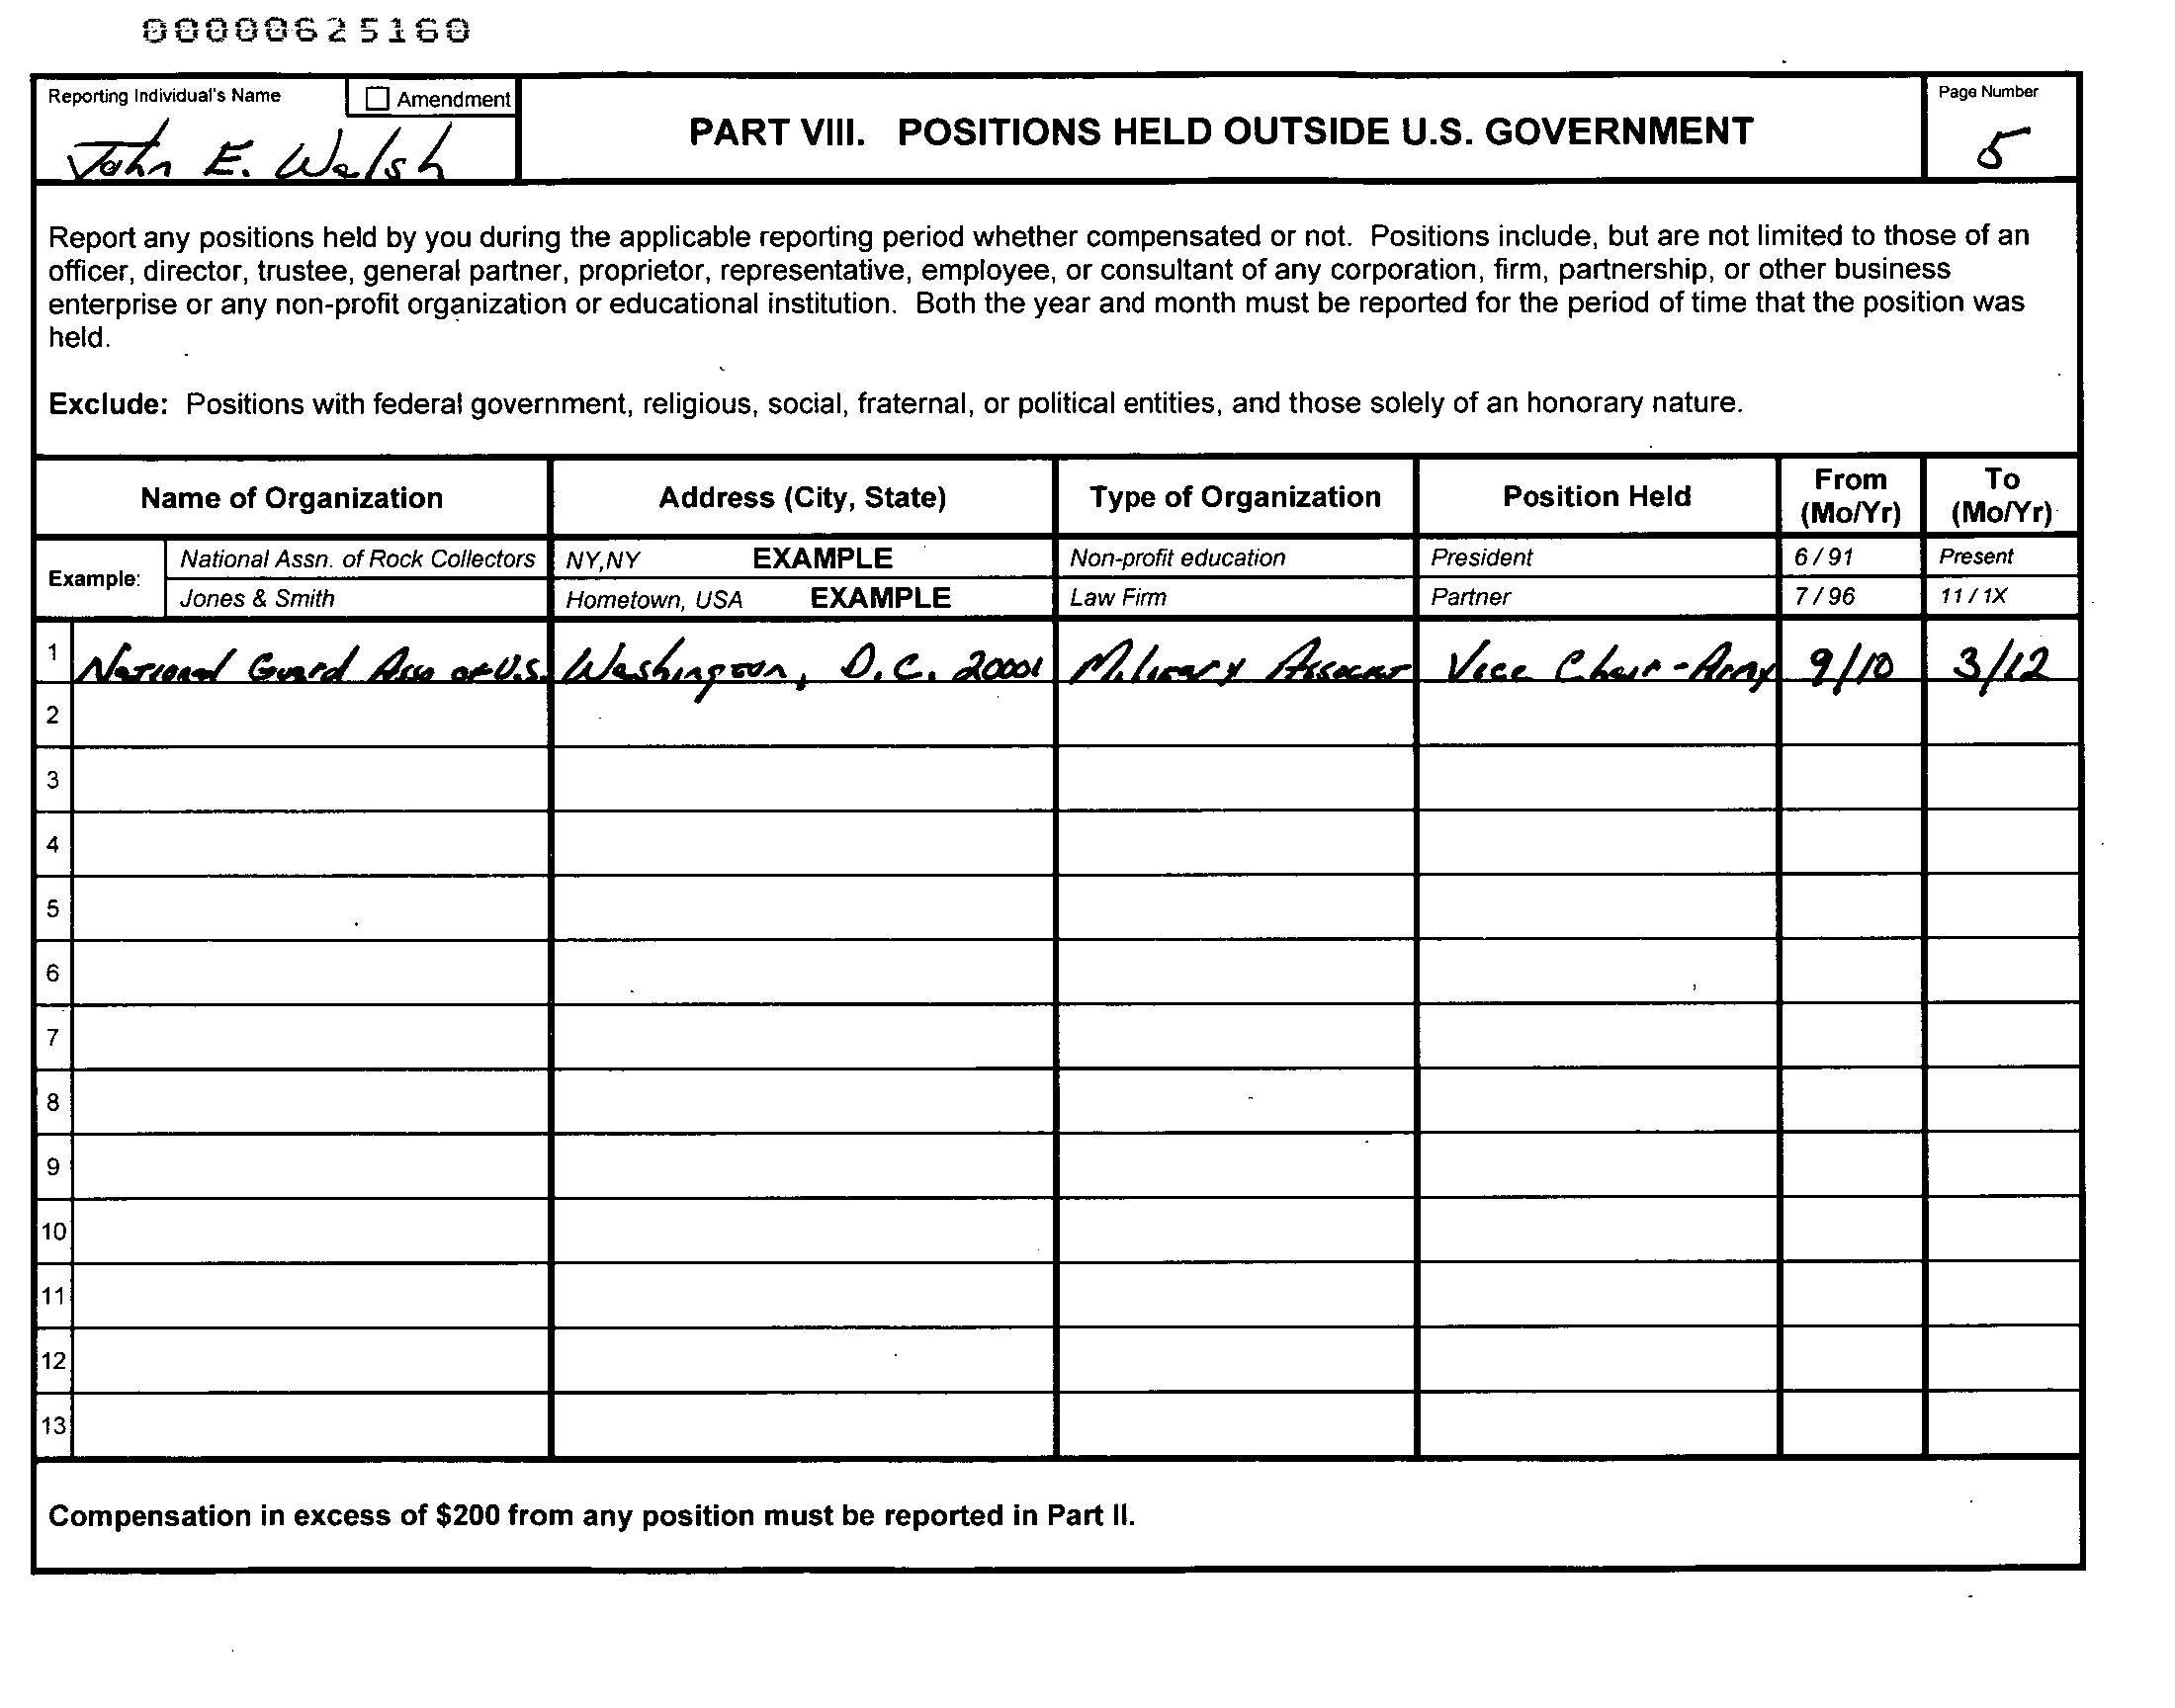 00000625160
Reporting Individual's Name
☐ Amendment
John E. Walsh
PART VIII. POSITIONS HELD OUTSIDE U.S. GOVERNMENT
Page Number
5
Report any positions held by you during the applicable reporting period whether compensated or not. Positions include, but are not limited to those of an
officer, director, trustee, general partner, proprietor, representative, employee, or consultant of any corporation, firm, partnership, or other business
enterprise or any non-profit organization or educational institution. Both the year and month must be reported for the period of time that the position was
held.
Exclude: Positions with federal government, religious, social, fraternal, or political entities, and those solely of an honorary nature.
Name of Organization Address (City, State) Type of Organization Position Held From (Mo/Yr) To (Mo/Yr)
Example:
National Assn. of Rock Collectors NY,NY EXAMPLE Non-profit education President 6 / 91 Present
Jones & Smith Hometown, USA EXAMPLE Law Firm Partner 7 / 96 11 / 1X
1 National Guard Assn of U.S. Washington, D.C. 20001 Military Vice Chair-Army 9/10 3/12
2
3
4
5
6
7
8
9
10
11
12
13
Compensation in excess of $200 from any position must be reported in Part II.